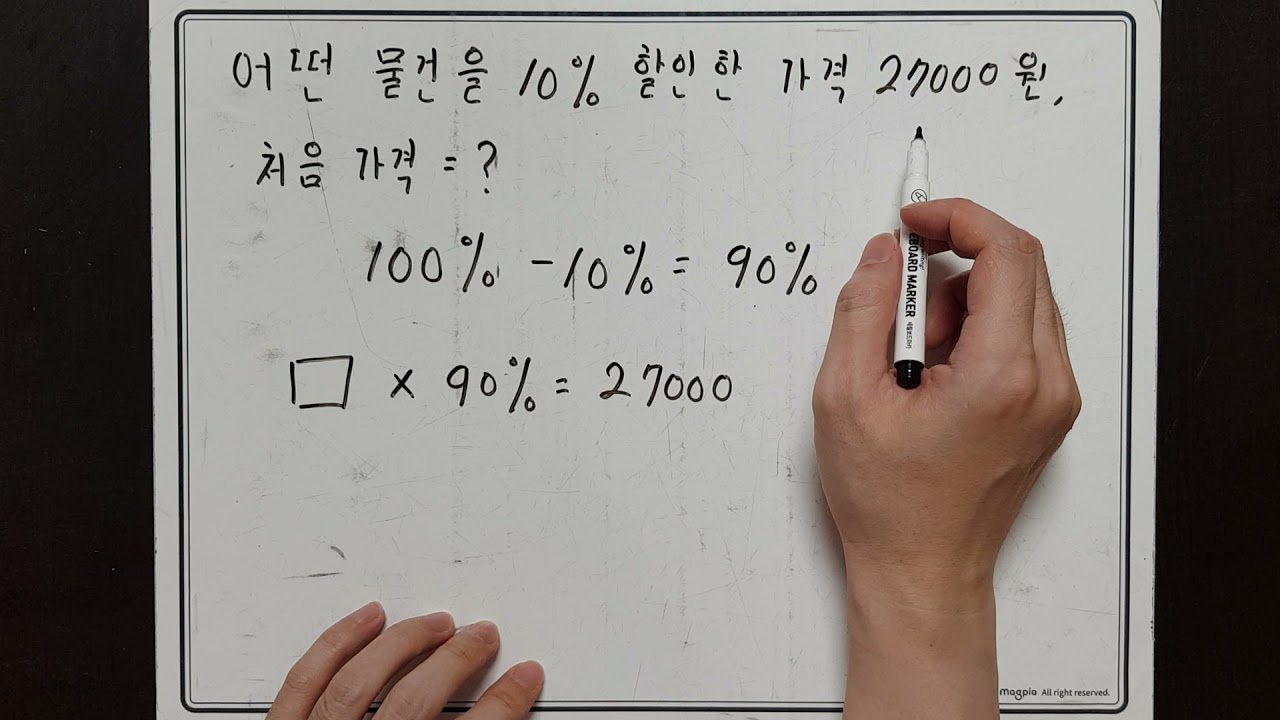 어떤 물건을 10% 할인한 가격 27000원,
처음 가격 = ?
100% - 10% = 90%
□ × 90% = 27000
BOARD MARKER
magpia All right reserved.